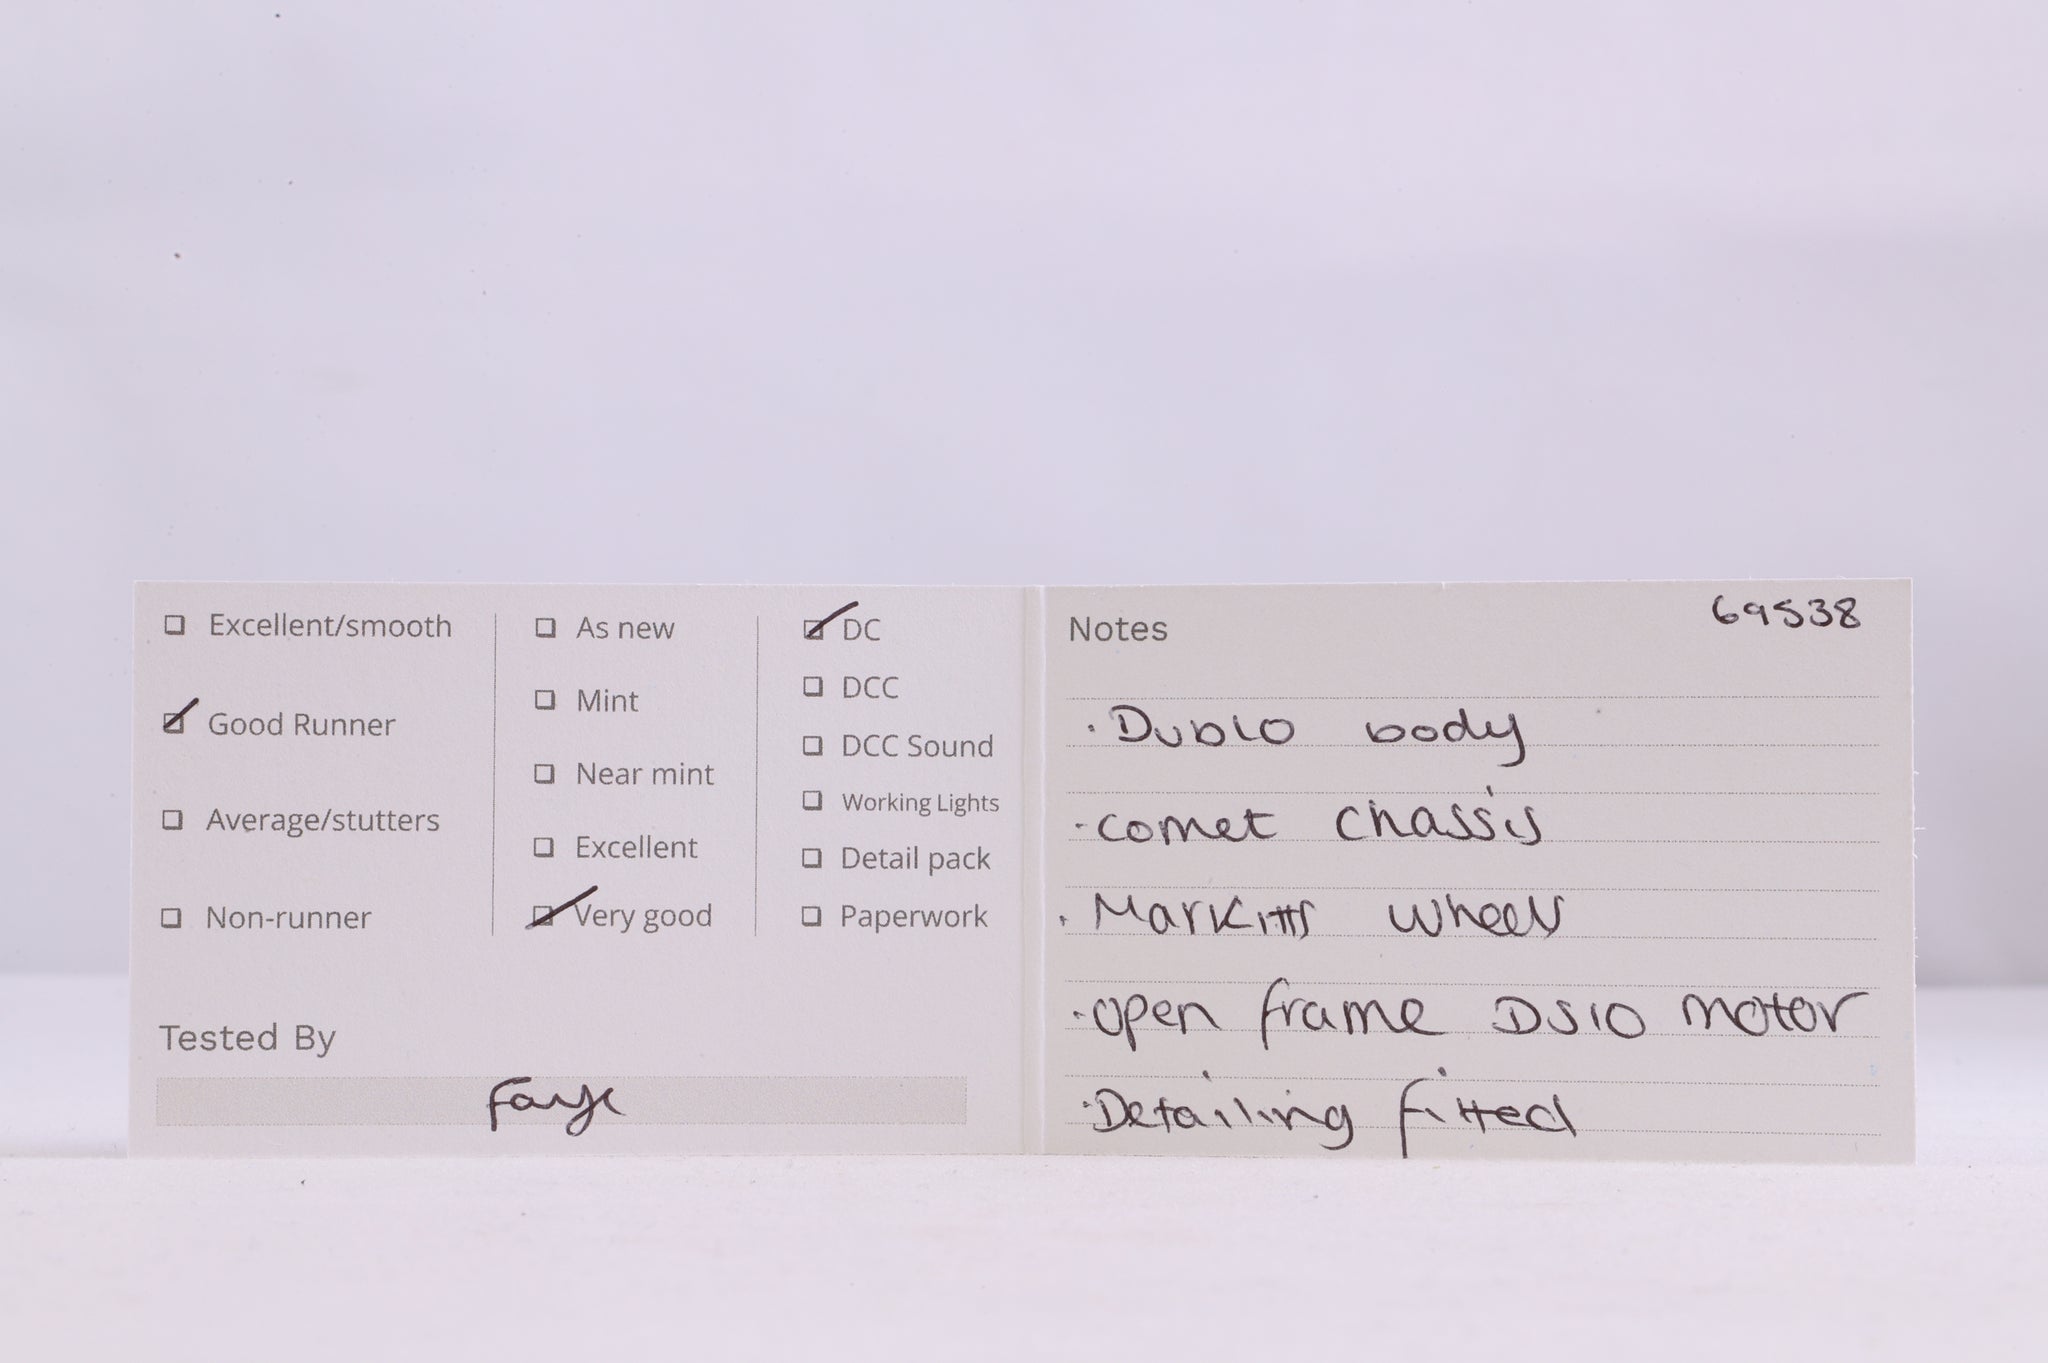 ☐ Excellent/smooth
☑ Good Runner
☐ Average/stutters
☐ Non-runner
☐ As new
☐ Mint
☐ Near mint
☐ Excellent
☑ Very good
☑ DC
☐ DCC
☐ DCC Sound
☐ Working Lights
☐ Detail pack
☐ Paperwork
Tested By
Faye
Notes
69538
· Dublo body
· comet chassis
· Markitts wheels
· open frame DS10 motor
· Detailing fitted